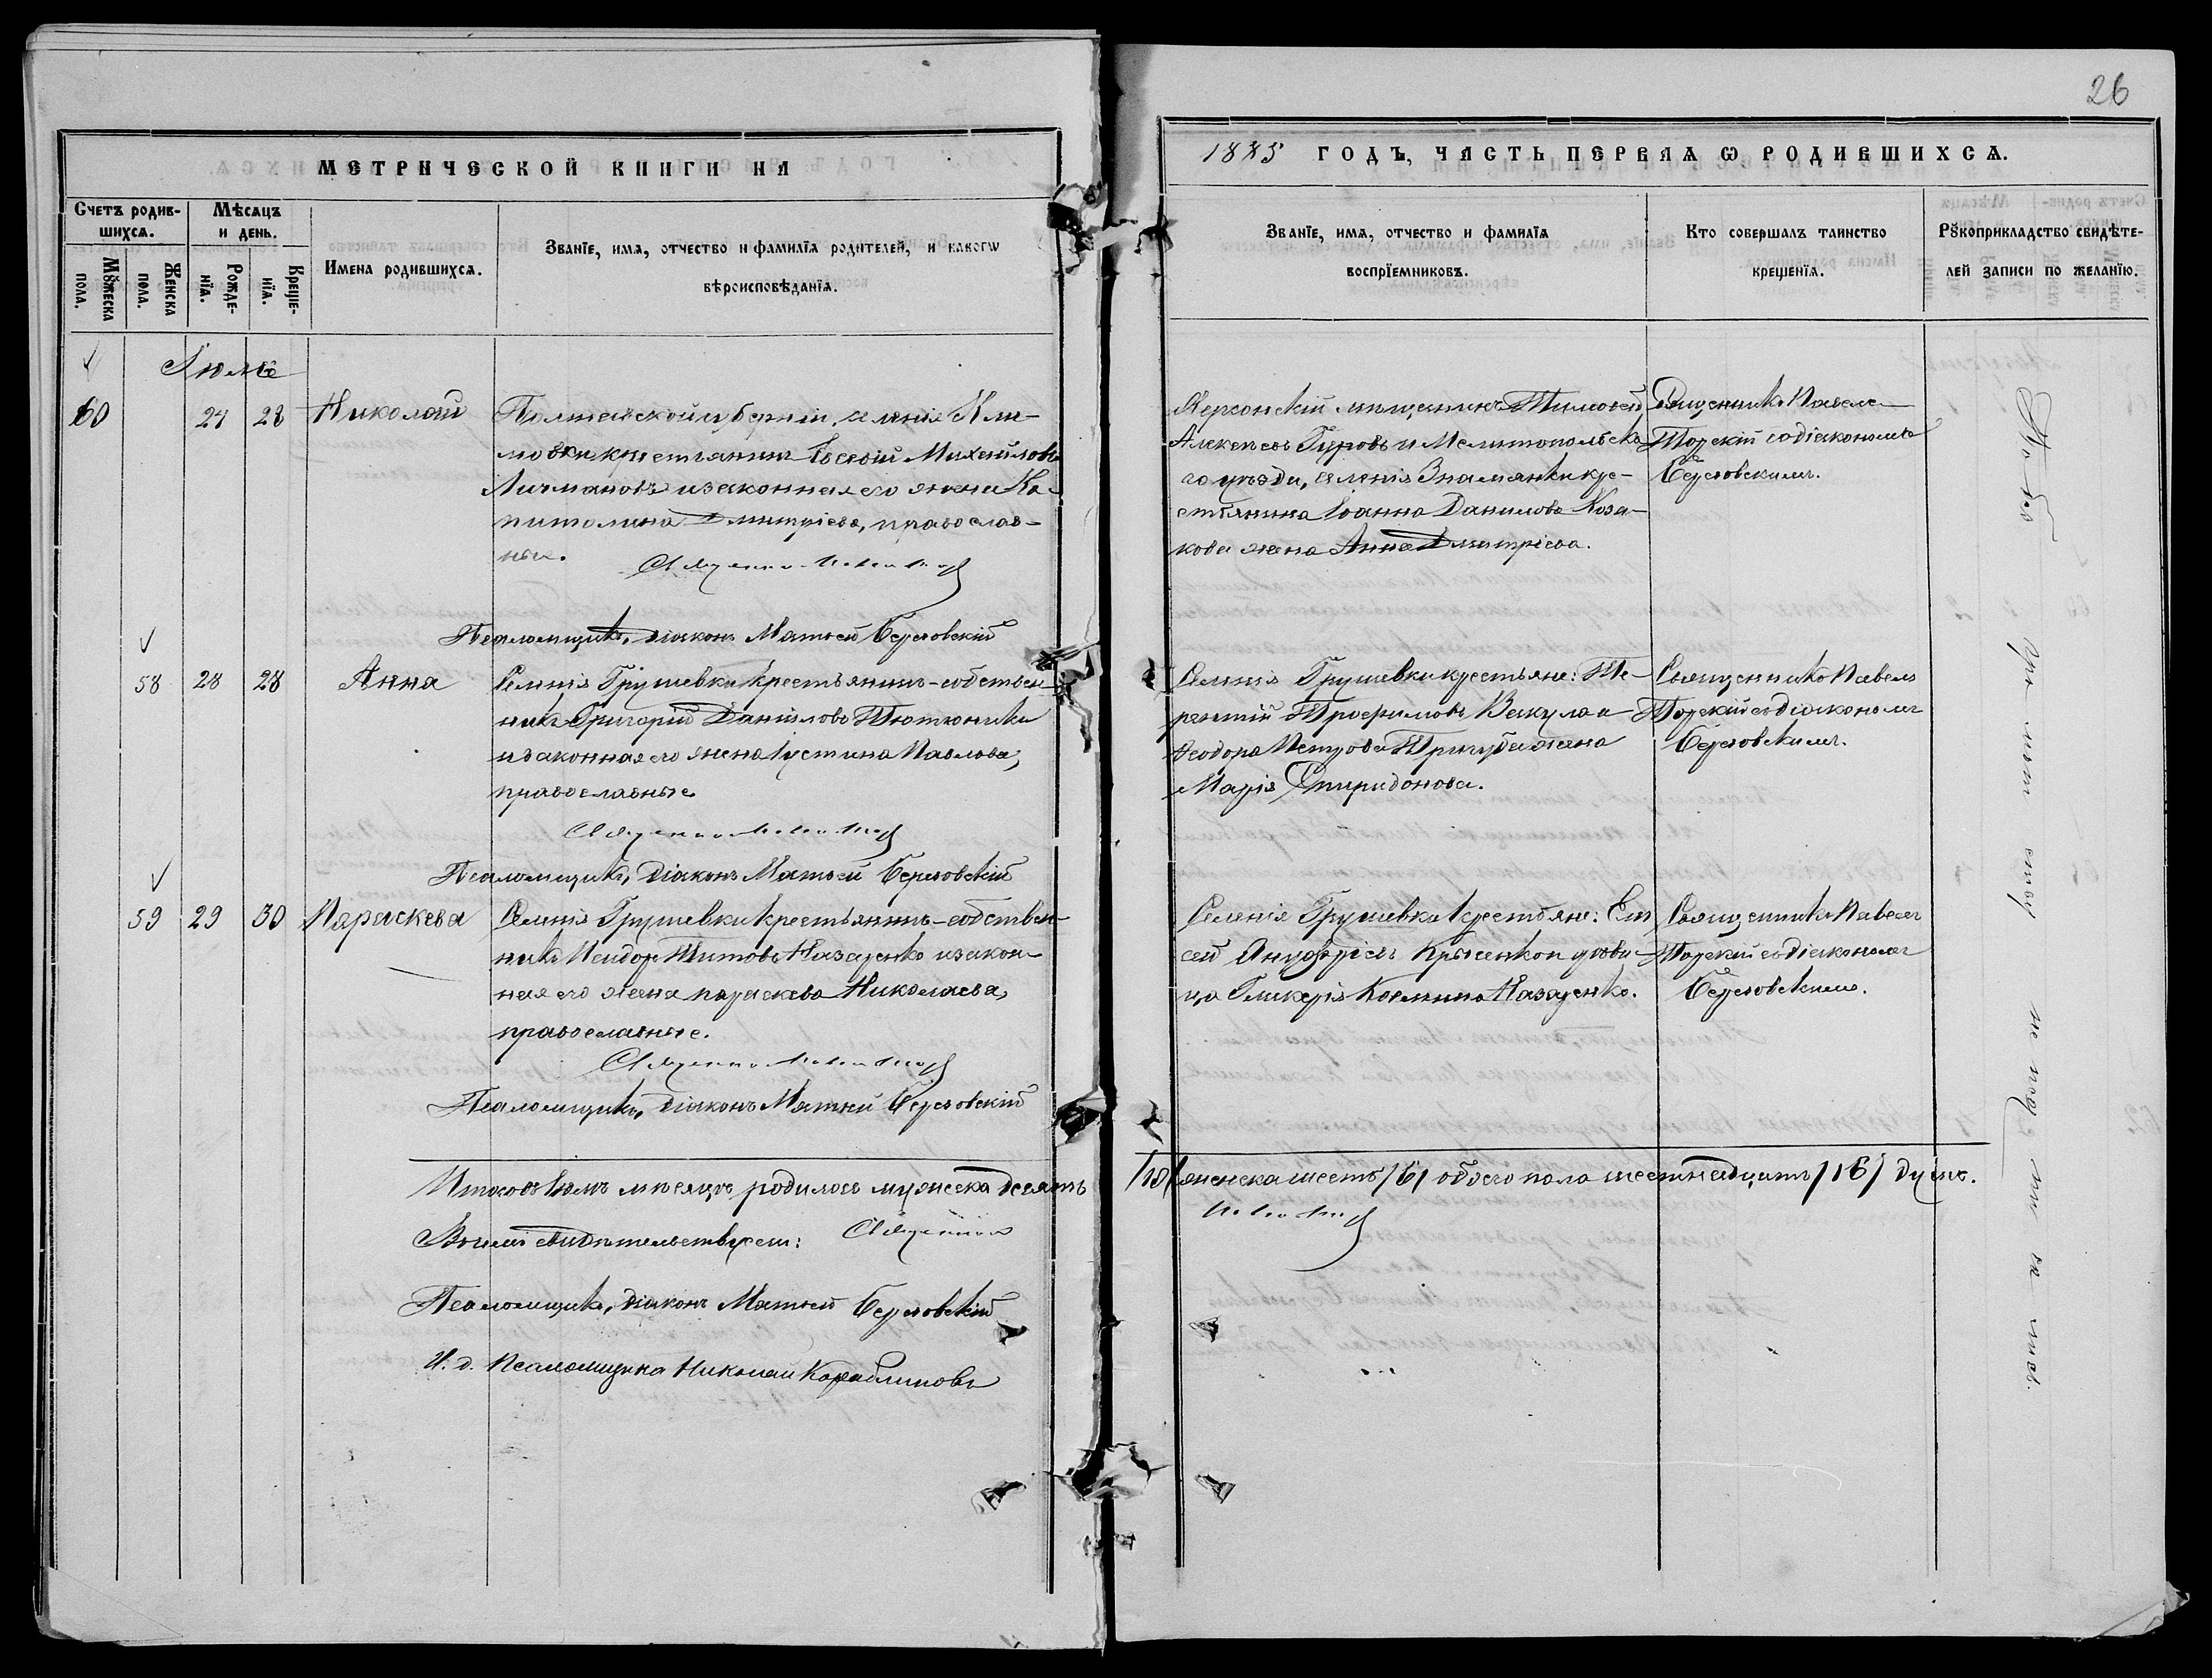 26
МЕТРИЧЕСКОЙ КНИГИ НА
1885 ГОДЪ, ЧАСТЬ ПЕРВАѦ Ѡ РОДИВШИХСѦ.
Счетъ родив-
шихсѧ.
Мѣсѧцъ
и день.
Мꙋжеска пола.
Женска пола.
Рожде-
нїѧ.
Креще-
нїѧ.
Имена родившихсѧ.
Званїе, имѧ, отчество и фамилїѧ родителей, и какогѡ
вѣроисповѣданїѧ.
Званїе, имѧ, отчество и фамилїѧ
воспрїемниковъ.
Кто совершалъ таинство
крещенїѧ.
Рꙋкоприкладство свидѣте-
лей записи по желанїю.
Іюль
60 24 28 Николай
Полтавской губерніи, селенія Кли-
мовки крестьянинъ Евсевій Михайловъ
Личмановъ и законная его жена Ка-
питолина Дмитріева, православ-
ные.
Священникъ Павелъ Торскій
Псаломщикъ, діаконъ Матѳей Береговскій
Херсонскій мѣщанинъ Тимоѳей
Алексѣевъ Гуровъ и Мелитопольска-
го уѣзда, селенія Знаменки кре-
стьянина Іоанна Данилова Коза-
кова жена Анна Дмитріева.
Священникъ Павелъ
Торскій съ діакономъ
Береговскимъ.
58 28 28 Анна
Селенія Грушевки крестьянинъ-собствен-
никъ Григорій Даніиловъ Тютюникъ
и законная его жена Іустина Павлова,
православные.
Священникъ Павелъ Торскій
Псаломщикъ, діаконъ Матѳей Береговскій
Селенія Грушевки крестьяне: Те-
рентій Трофимовъ Вакула и
Ѳеодора Петрова Пригуба жена
Марія Спиридонова.
Священникъ Павелъ
Торскій съ діакономъ
Береговскимъ.
59 29 30 Параскева
Селенія Грушевки крестьянинъ-собствен-
никъ Исидоръ Титовъ Назаренко и закон-
ная его жена Параскева Николаева,
православные.
Священникъ Павелъ Торскій
Псаломщикъ, діаконъ Матѳей Береговскій
Селенія Грушевки крестьяне: Ели
сей Ануфріевъ Крысенко и дѣви-
ца Гликерія Космина Назаренко.
Священникъ Павелъ
Торскій съ діакономъ
Береговскимъ.
Итого въ Іюлѣ мѣсяцѣ родилось мужеска десять /10/ женска шесть /6/ обоего пола шестнадцать /16/ душъ.
Въ чемъ свидѣтельствуемъ: Священникъ Павелъ Торскій
Псаломщикъ, діаконъ Матѳей Береговскій
И. д. Псаломщика Николай Карабиновъ